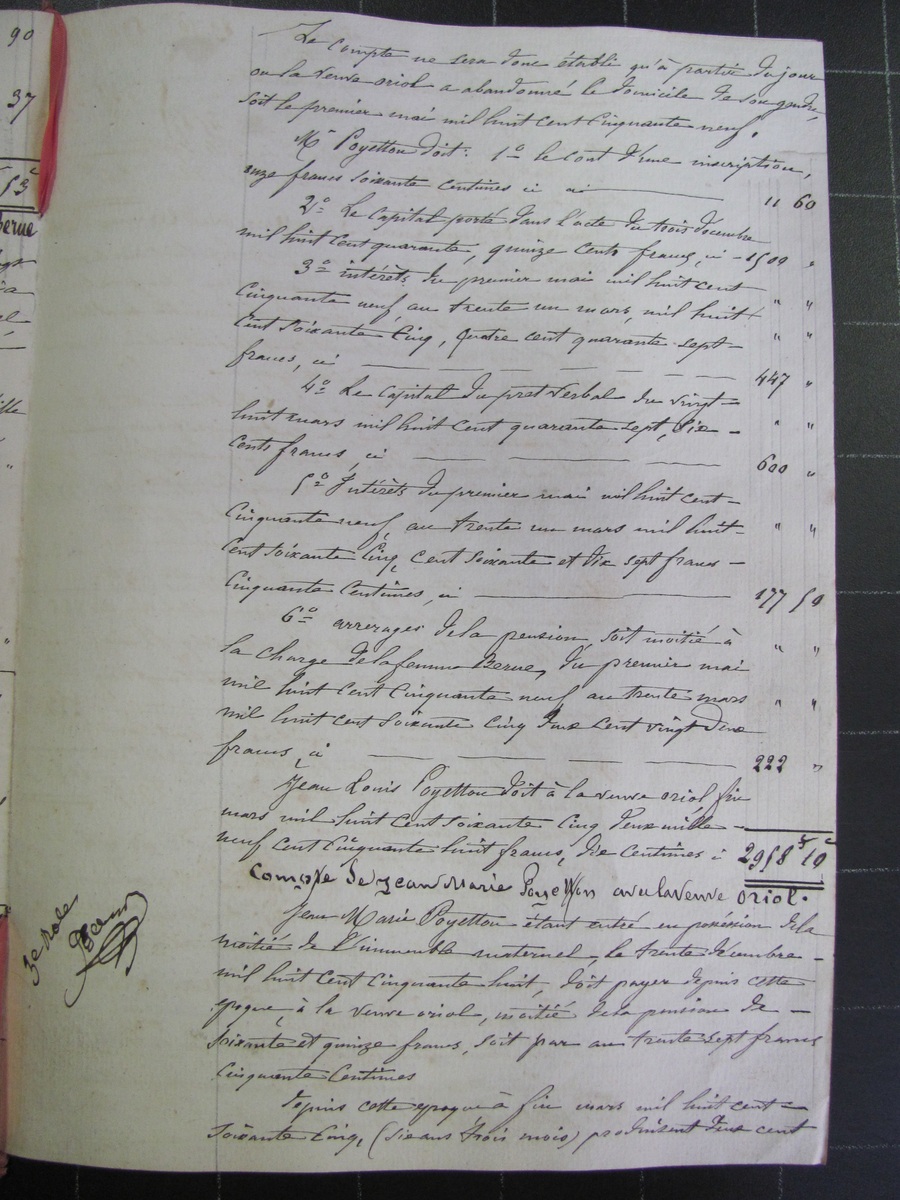 90
37
53
Le Compte ne sera donc établi qu'à partir du jour
ou la veuve oriol a abandonné le domicile de son gendre,
soit le premier mai mil huit cent cinquante neuf.
Mr Poyetton doit: 1o le cout d'une inscription,
onze francs soixante centimes ci 11 60
2o Le capital porté dans l'acte du trois décembre
mil huit cent quarante, quinze cents francs, ci - 1500 "
3o intérêts du premier mai mil huit cent " "
cinquante neuf, au trente un mars, mil huit " "
cent soixante cinq, quatre cent quarante sept
francs, ci 447 "
4o Le capital du pret verbal du vingt
huit mars mil huit cent quarante sept, six - " "
cents francs, ci 600 "
5o Intérêts du premier mai mil huit cent
cinquante neuf, au trente un mars mil huit " "
cent soixante cinq, cent soixante et dix sept francs
cinquante centimes, ci 177 50
6o arrerages de la pension, soit moitié à " "
la charge de la femme Berne, du premier mai
mil huit cent cinquante neuf au trente mars " "
mil huit cent soixante cinq deux cent vingt deux
francs, ci 222 "
Jean Louis Poyetton doit à la veuve oriol, fin
mars mil huit cent soixante cinq deux mille
neuf cent cinquante huit francs, dix centimes ci 2958 f 10 c
Compte de Jean Marie Poyetton avec la veuve oriol.
Jean Marie Poyetton étant entré en possession de la
moitié de l'immeuble maternel, le trente décembre -
mil huit cent cinquante huit, doit payer depuis cette
epoque, à la veuve oriol, moitié de la pension de -
soixante et quinze francs, soit par an trente sept francs
cinquante centimes
depuis cette epoque à fin mars mil huit cent
soixante cinq, (six ans trois mois) produisent deux cent
3e Role